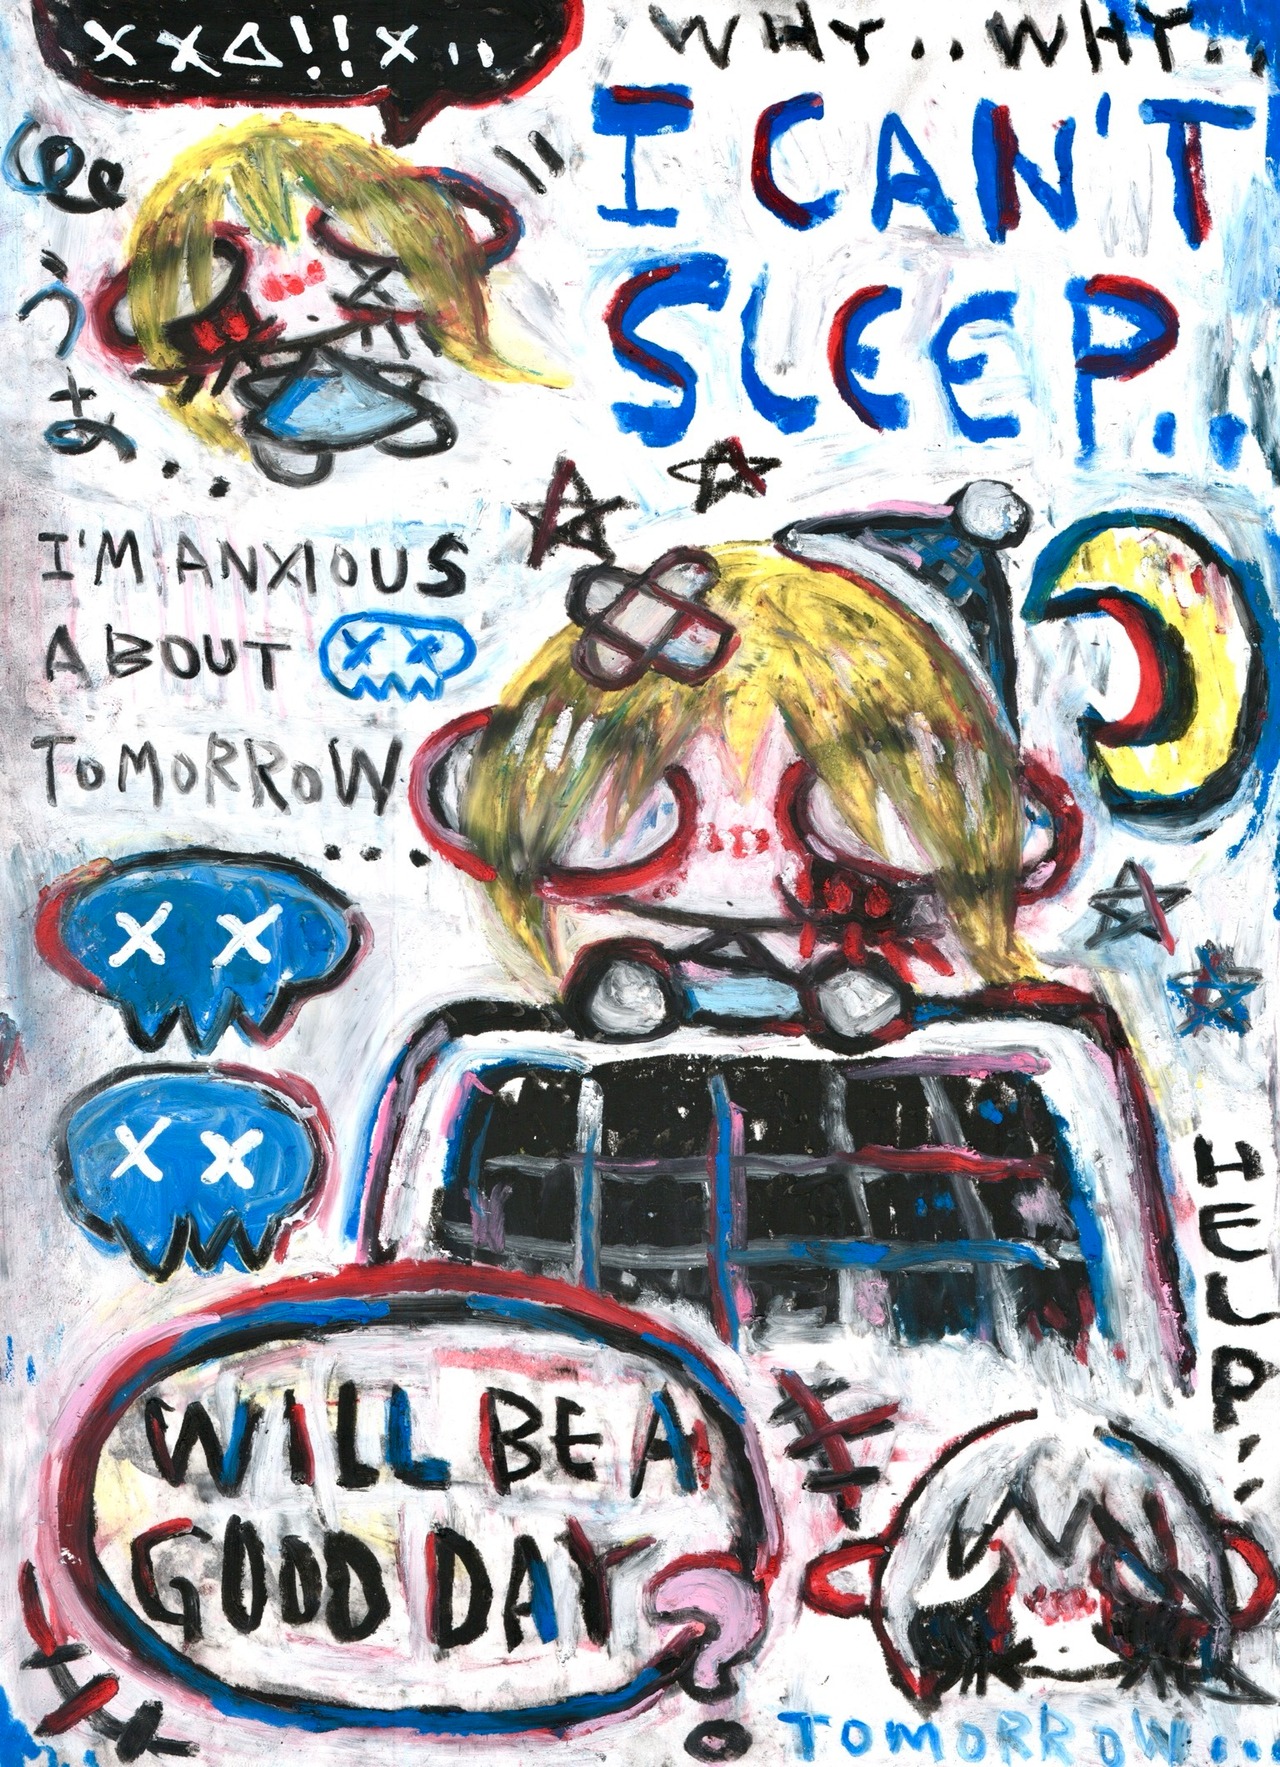 xx△!!x..
WHY..WHY..
I CAN'T
SLEEP..
うぉ..
I'M ANXIOUS
ABOUT
TOMORROW
...
HELP..
WILL BE A
GOOD DAY?
TOMORROW...